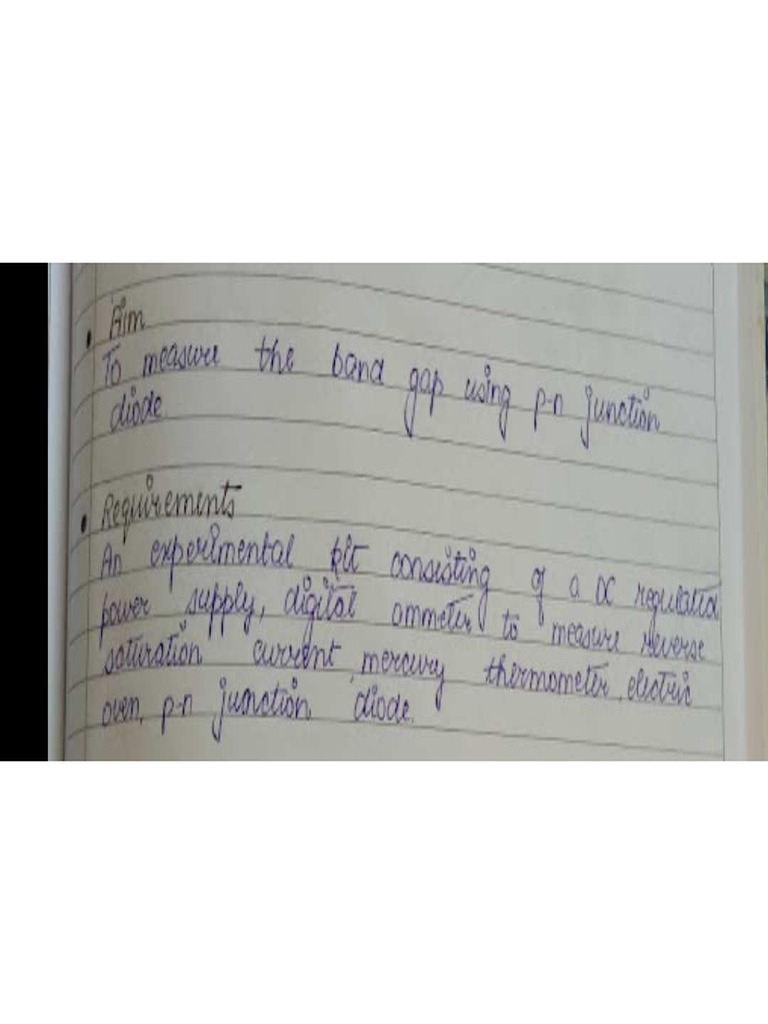 • Aim
To measure the band gap using p-n junction
diode.
• Requirements
An experimental kit consisting of a DC regulated
power supply, digital ammeter to measure reverse
saturation current, mercury thermometer, electric
oven, p-n junction diode.